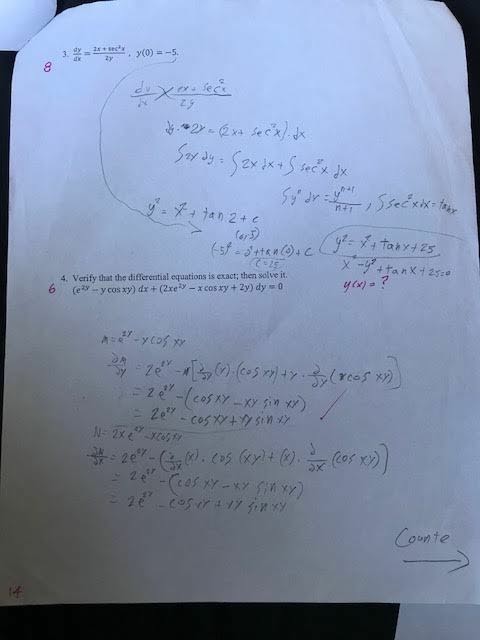 3. dy/dx = (2x + sec²x)/2y , y(0) = −5.
8
dy/dx = (2x + sec²x)/2y
dy · 2y = (2x + sec²x) · dx
∫2y dy = ∫2x dx + ∫sec²x dx
∫yⁿ dy = yⁿ⁺¹/n+1 , ∫sec²x dx = tanx
y² = x² + tan 2 + c
(-5)² = 0² + tan(0) + C
C = 25
y² = x² + tanx + 25
x² - y² + tanx + 25 = 0
y(x) = ?
4. Verify that the differential equations is exact; then solve it.
6
(e²ʸ − y cos xy) dx + (2xe²ʸ − x cos xy + 2y) dy = 0
M = e²ʸ - y cos xy
∂M/∂y = 2e²ʸ - [∂/∂y (y) · (cos xy) + y · ∂/∂y (cos xy)]
= 2e²ʸ - (cos xy - xy sin xy)
= 2e²ʸ - cos xy + xy sin xy
N = 2xe²ʸ - x cos xy
∂N/∂x = 2e²ʸ - (∂/∂x (x) · cos (xy) + (x) · ∂/∂x (cos xy))
= 2e²ʸ - (cos xy - xy sin xy)
= 2e²ʸ - cos xy + xy sin xy
Counte
14